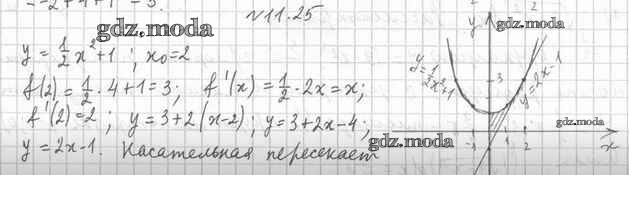 №11.25
gdz.moda
y = 1/2 x² + 1 ; x₀ = 2
f(2) = 1/2 · 4 + 1 = 3; f'(x) = 1/2 · 2x = x;
f'(2) = 2 ; y = 3 + 2(x-2) ; y = 3 + 2x - 4 ;
y = 2x - 1. Касательная пересекает
gdz.moda
gdz.moda
y
y = 1/2 x² + 1
y = 2x - 1
3
gdz.moda
-1 1 2 x